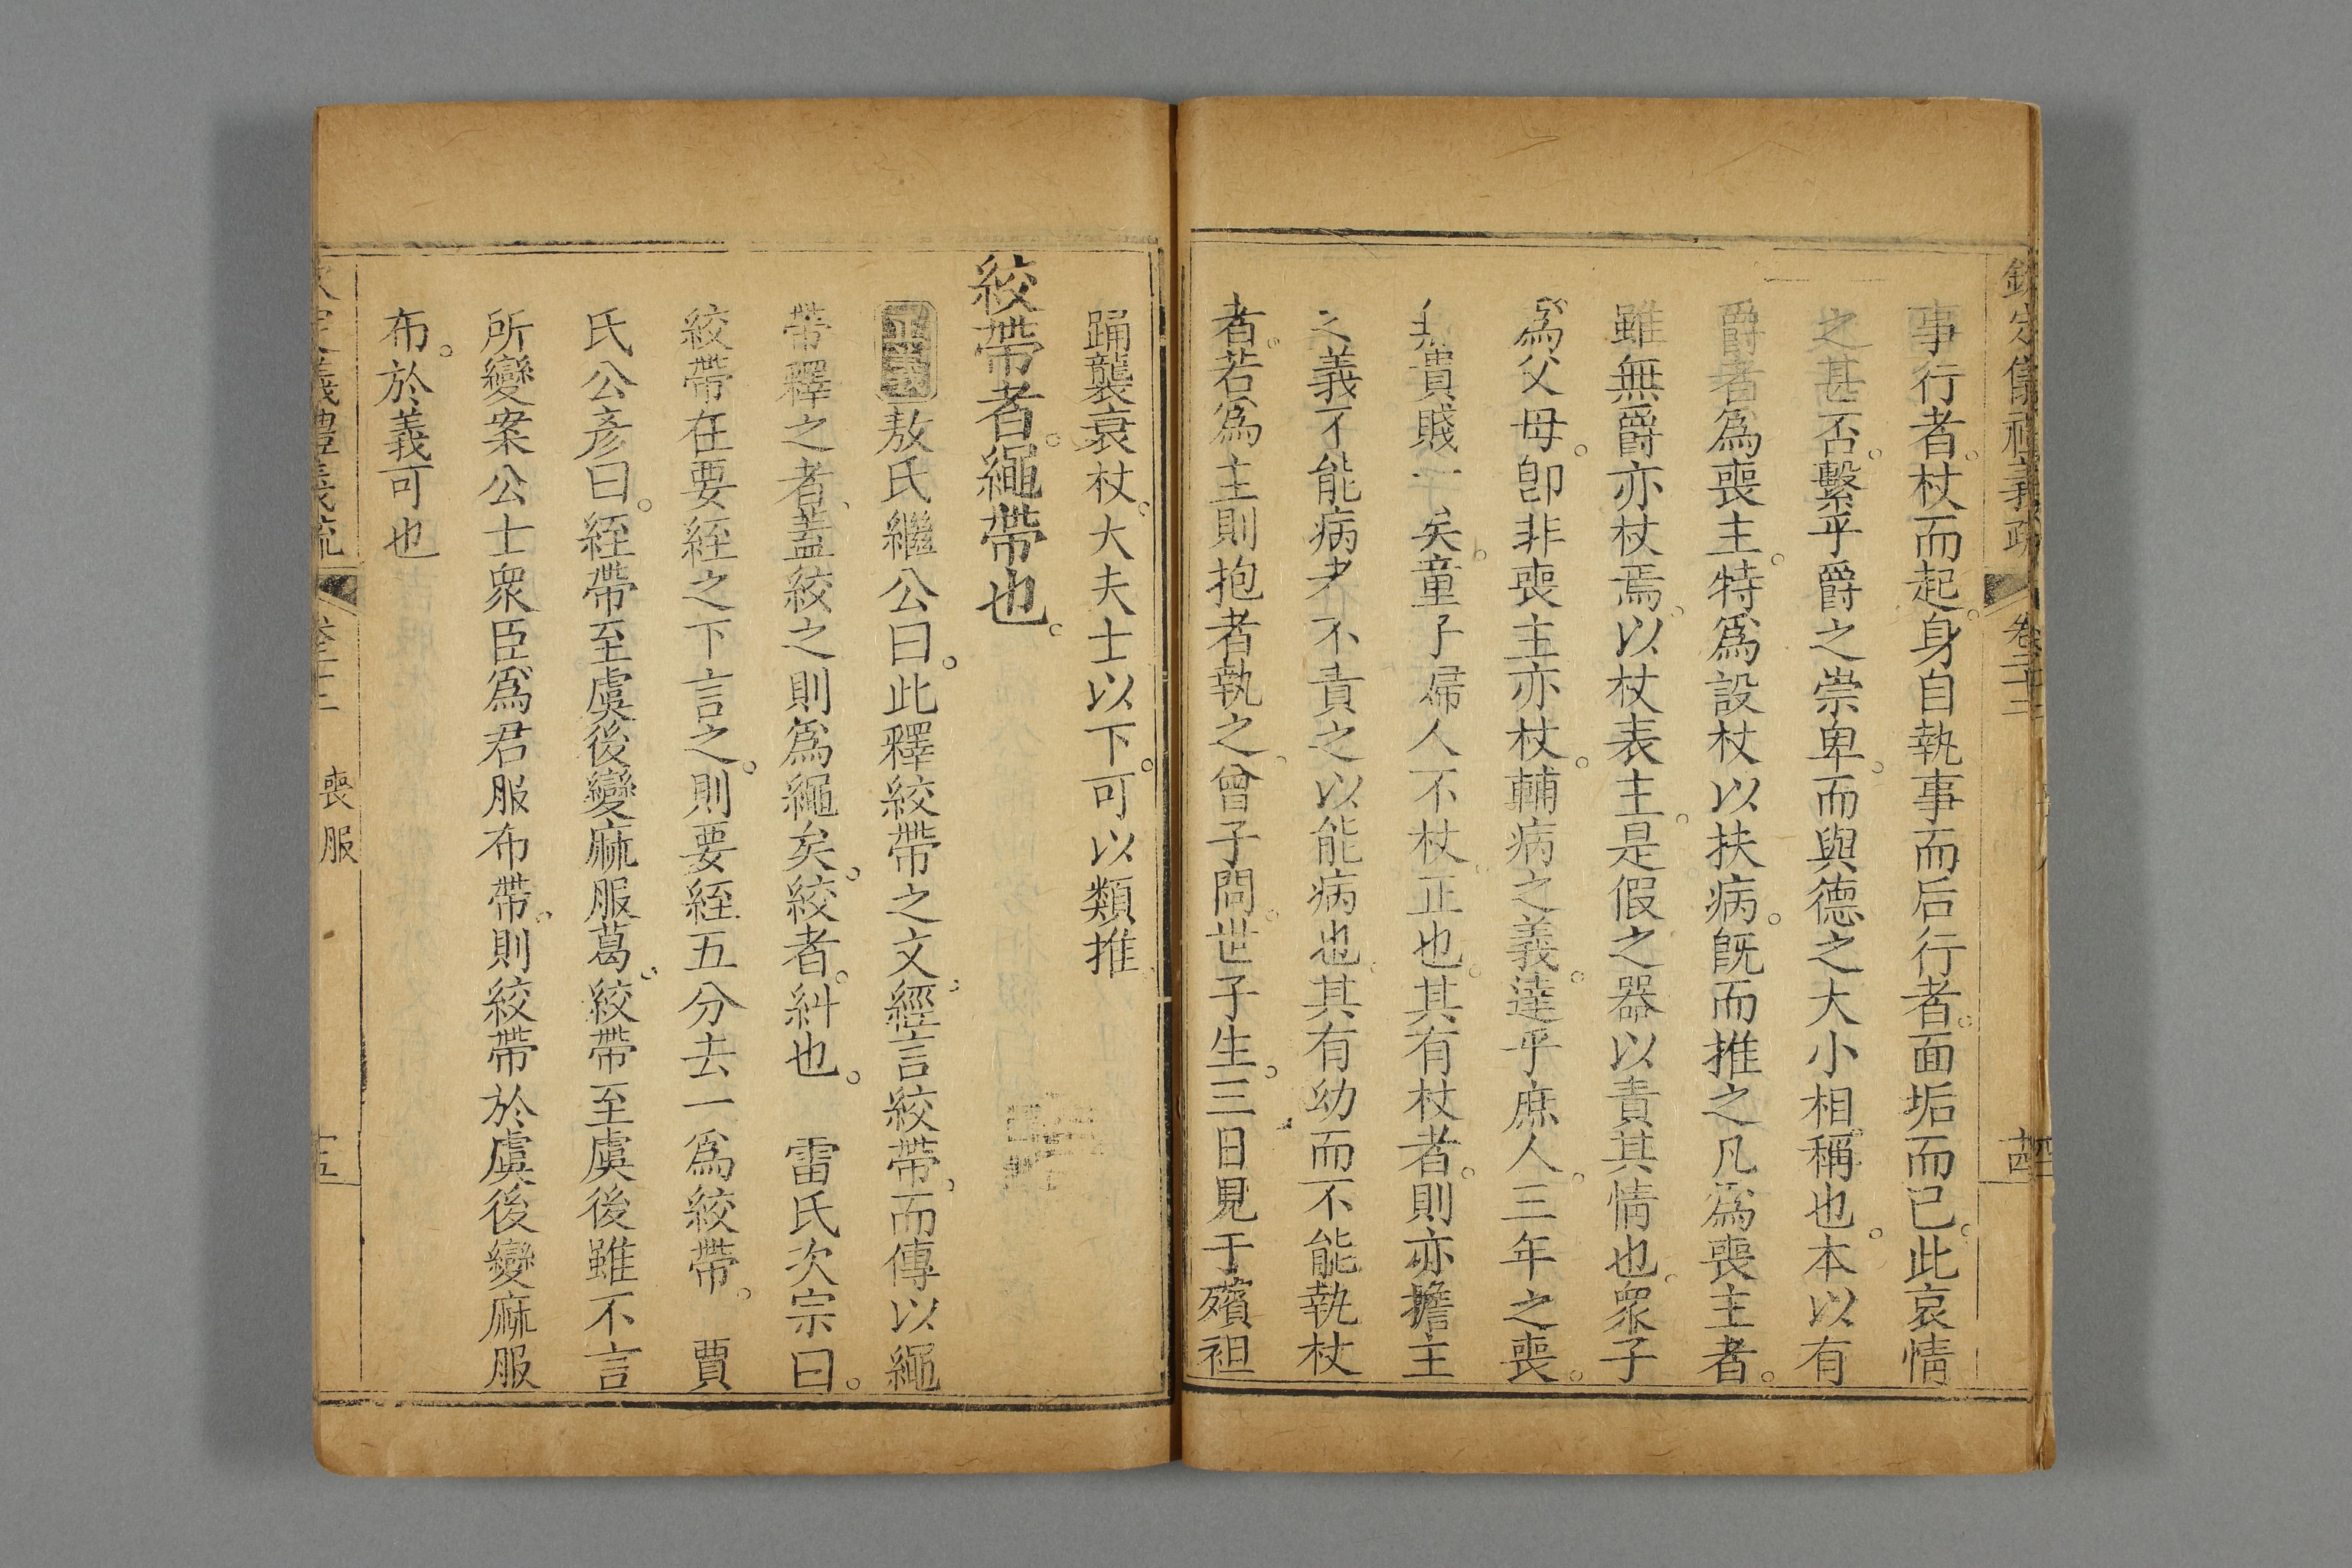 欽定儀禮義疏 卷二十二 十四
事行者。杖而起。身自執事而后行者。面垢而已。此哀情
之甚否。繫乎爵之崇卑。而與德之大小相稱也。本以有
爵者為喪主。特為設杖以扶病。既而推之凡為喪主者。
雖無爵亦杖焉。以杖表主。是假之器以責其情也。眾子
為父母。卽非喪主亦杖。輔病之義。達乎庶人。三年之喪。
貴賤一矣。童子婦人不杖正也。其有杖者。則亦擔主
之義不能病者不責之以能病也。其有幼而不能執杖
者。若為主則抱者執之。曾子問。世子生。三日見于殯袒
踊襲衰杖。大夫士以下。可以類推
絞帶者。繩帶也。
正義 敖氏繼公曰。此釋絞帶之文。經言絞帶。而傳以繩
帶釋之者、蓋絞之則為繩矣。絞者。糾也。 雷氏次宗曰。
絞帶在要絰之下言之。則要絰五分去一為絞帶。 賈
氏公彥曰。絰帶至虞後變麻服葛。絞帶至虞後雖不言
所變案公士眾臣為君服布帶。則絞帶於虞後變麻服
布。於義可也
欽定儀禮義疏 卷二十二 喪服 十五